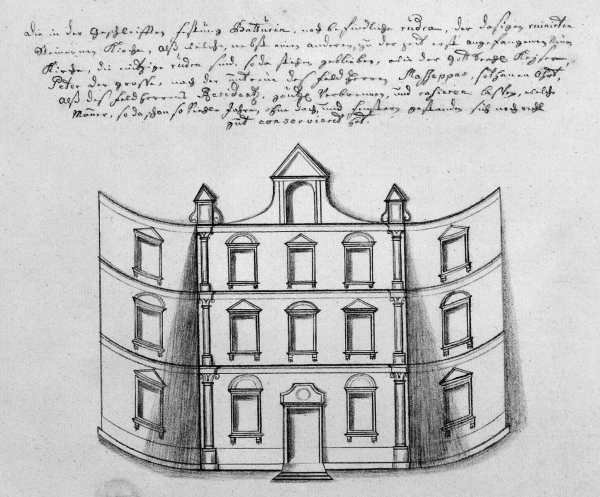 Die in der geschleifften festung Baturin, noch befindliche rudera, der dasigen ruinirten
Steinernen Kirche, alß welche, nebst einer anderen, zu der zeit erst angefangenen
Kirche, die eintzige sind, so da stehen geblieben, wie der Gottseel Keyser,
Peter der grosse, nach der des feldherren Masseppas,
alß des feldherrens Residentz, gäntzl verbrennen, und rasieren lassen, welche
Mauer, so da schon so viehle Jahren, ohne dach und fenstern gestanden sich noch recht
gut conservieret hat.